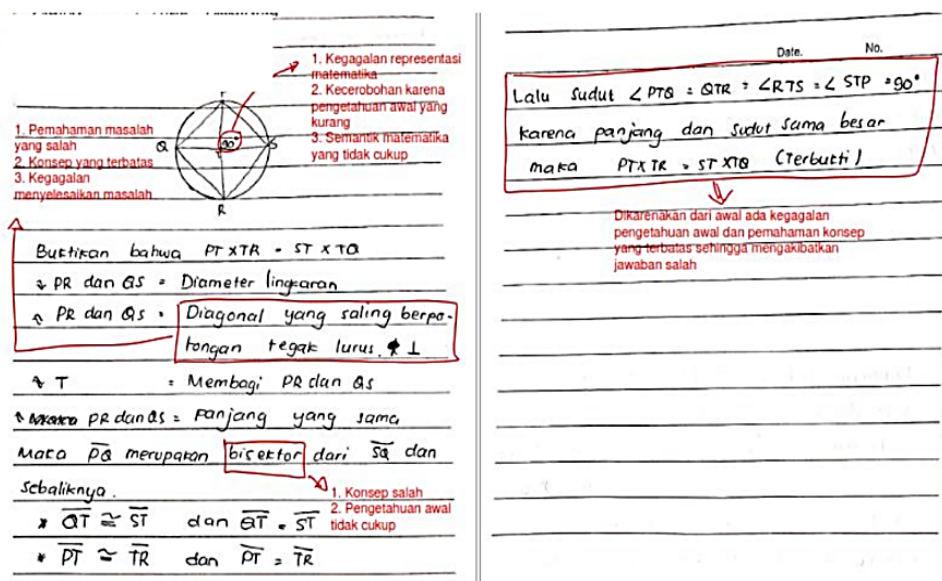 1. Kegagalan representasi
matematika
2. Kecerobohan karena
pengetahuan awal yang
kurang
3. Semantik matematika
yang tidak cukup
1. Pemahaman masalah
yang salah
2. Konsep yang terbatas
3. Kegagalan
menyelesaikan masalah
Q
90°
S
R
Buktikan bahwa PT X TR = ST X TQ
PR dan QS = Diameter lingkaran
PR dan QS = Diagonal yang saling berpo-
tongan tegak lurus. ⊥
T = Membagi PR dan QS
PR dan QS = Panjang yang sama
Maka PQ merupakan bisektor dari SQ dan
Sebaliknya.
1. Konsep salah
2. Pengetahuan awal
tidak cukup
* QT ≅ ST dan QT = ST
* PT ≅ TR dan PT = TR
Date. No.
Lalu sudut ∠PTQ = QTR = ∠RTS = ∠STP = 90°
karena panjang dan sudut sama besar
maka PT X TR = ST X TQ (Terbukti)
Dikarenakan dari awal ada kegagalan
pengetahuan awal dan pemahaman konsep
yang terbatas sehingga mengakibatkan
jawaban salah